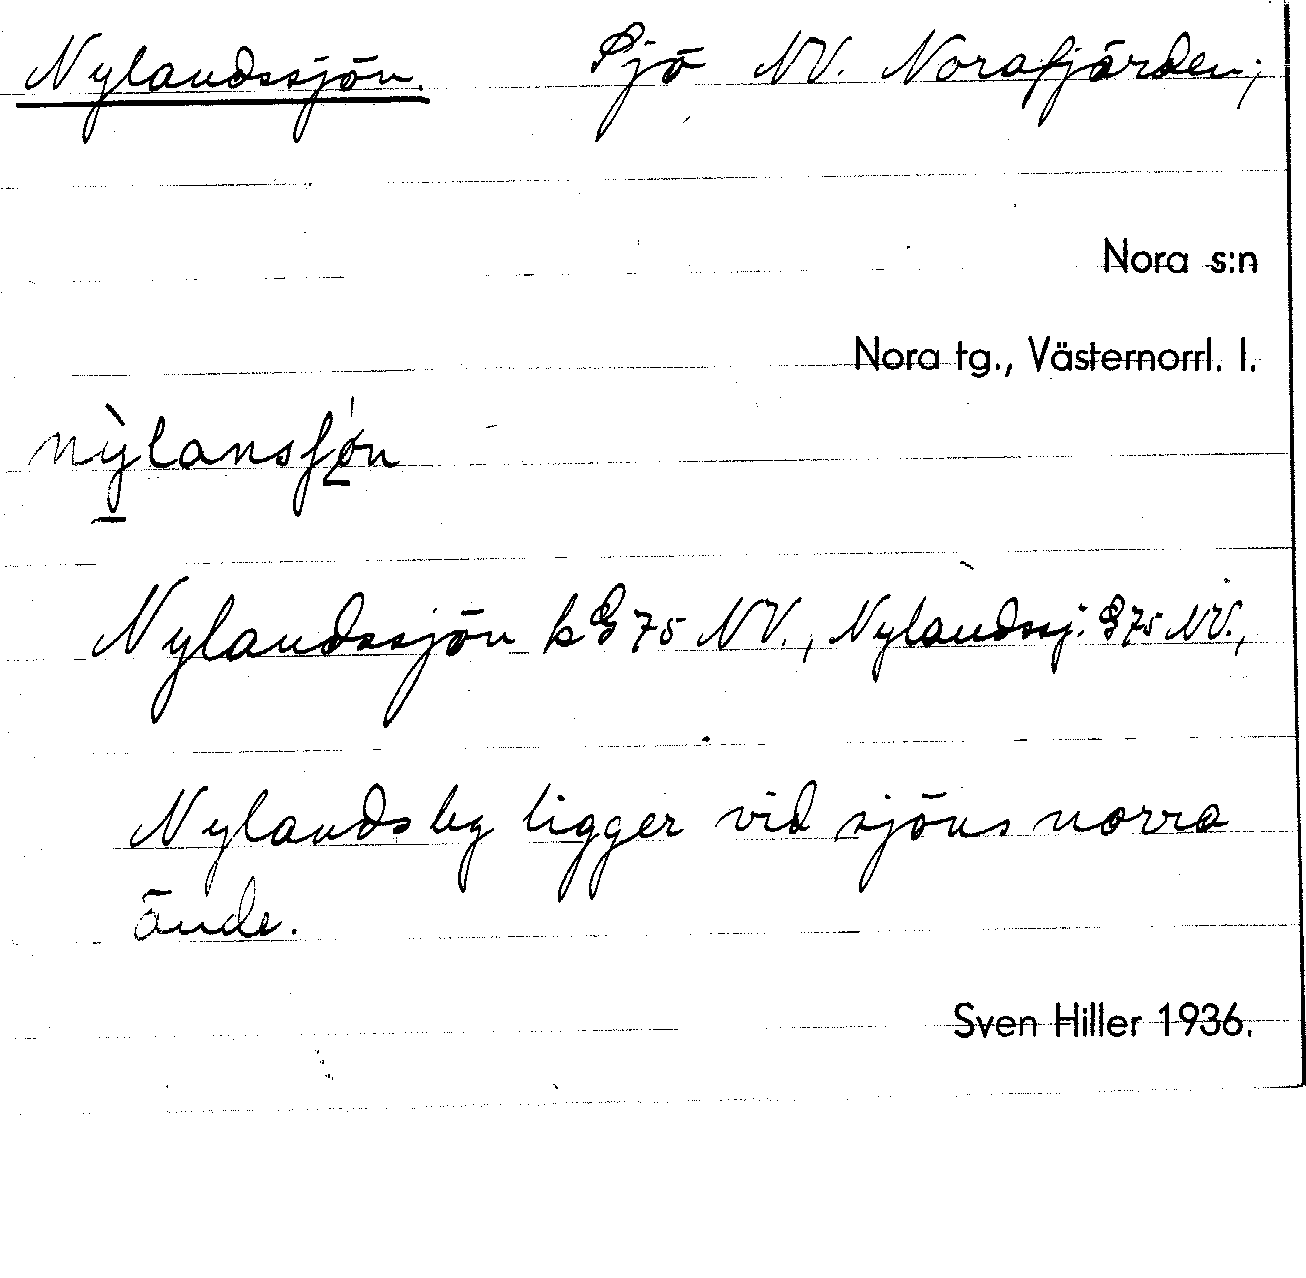 Nylandssjön. Sjö NV. Norafjärden;
Nora s:n
Nora tg., Västernorrl. l.
nỳlansʃø̀n
Nylandssjön k G 75 NV., Nylandssj. G 75 NV.,
Nylands by ligger vid sjöns norra
ände.
Sven Hiller 1936.